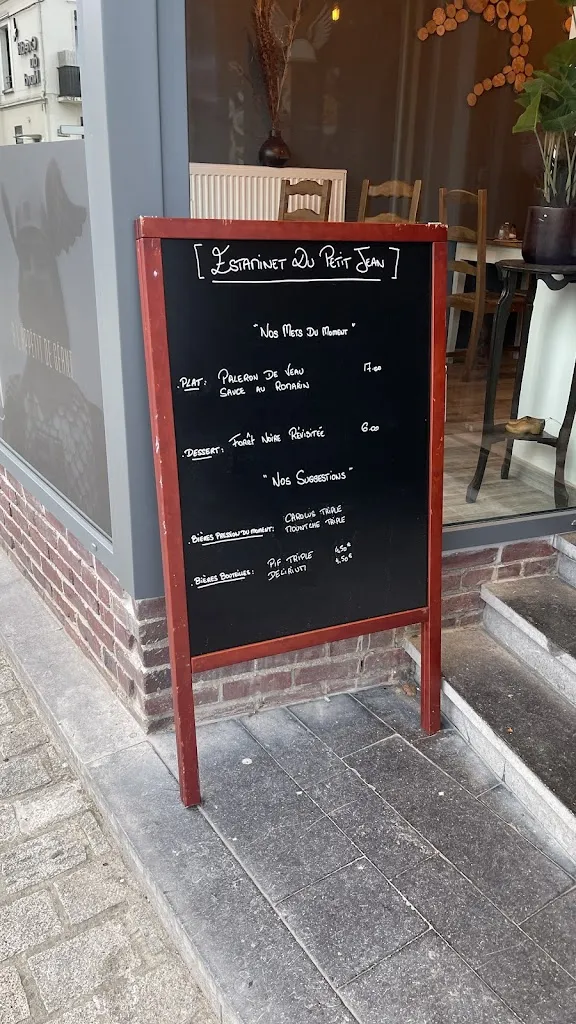 [ Estaminet Du Petit Jean ]
"Nos Mets Du Moment"
. Plat : Paleron De Veau 17.00
Sauce au Romarin
. Dessert : Forêt Noire Révisitée 6.00
"Nos Suggestions"
. Bières Pression du moment : Carolus Triple
Triple
. Bières Bouteilles : Pif Triple 4.50€
Delirium 4.50€
PETIT DE GÉANT